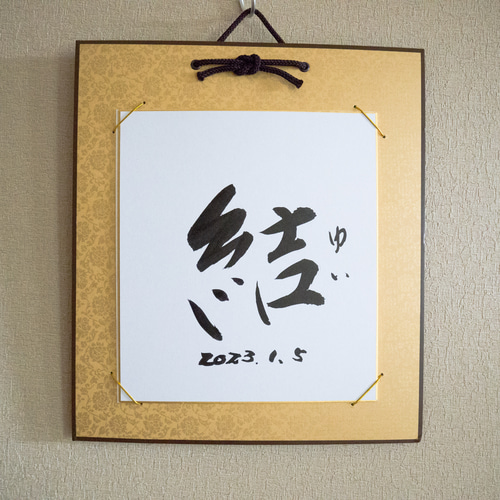 結
ゆい
2023.1.5